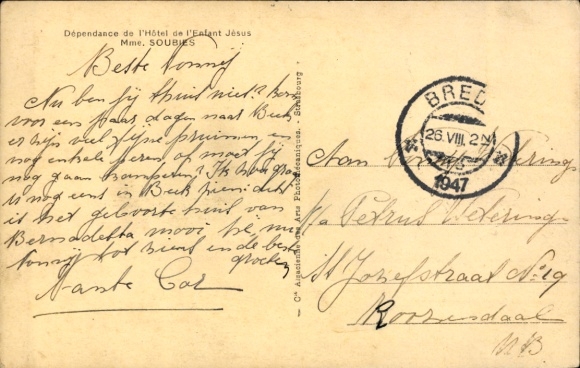 Dépendance de l'Hôtel de l'Enfant Jésus
Mme. SOUBIES
Beste Tonnij
Nu ben jij thuis niet? kom
voor een paar dagen naar Beek
er zijn veel fijne pruimen en
nog enkele peren of moet jij
nog gaan kamperen? Ik hoop
U nog eens in Beek
is het geboorte huis van
Bernadetta mooi hé, nu
Tonnij tot ziens en de beste
groeten
Tante Cor
— Cie Alsacienne des Arts Photomécaniques. - Strasbourg —
BREDA
26.VIII.
1947
Aan Wetering
p/a Petrus Wetering
St Josefstraat No 19
Roozendaal
NB